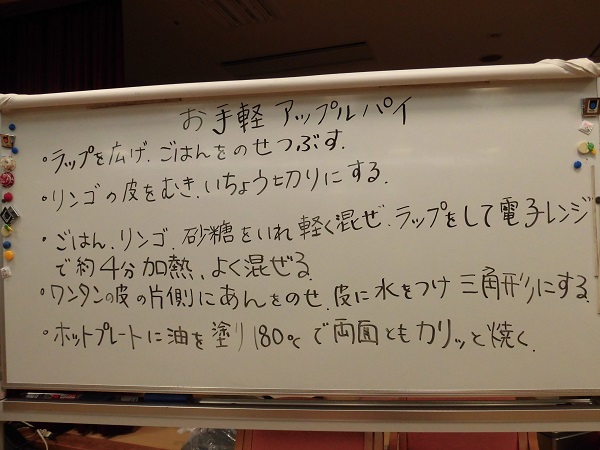 お手軽 アップルパイ
・ラップを広げ、ごはんをのせつぶす。
・リンゴの皮をむき、いちょう切りにする。
・ごはん、リンゴ、砂糖をいれ軽く混ぜ、ラップをして電子レンジ
で約4分加熱、よく混ぜる。
・ワンタンの皮の片側にあんをのせ、皮に水をつけ三角形にする。
・ホットプレートに油を塗り180℃で両面ともカリッと焼く。